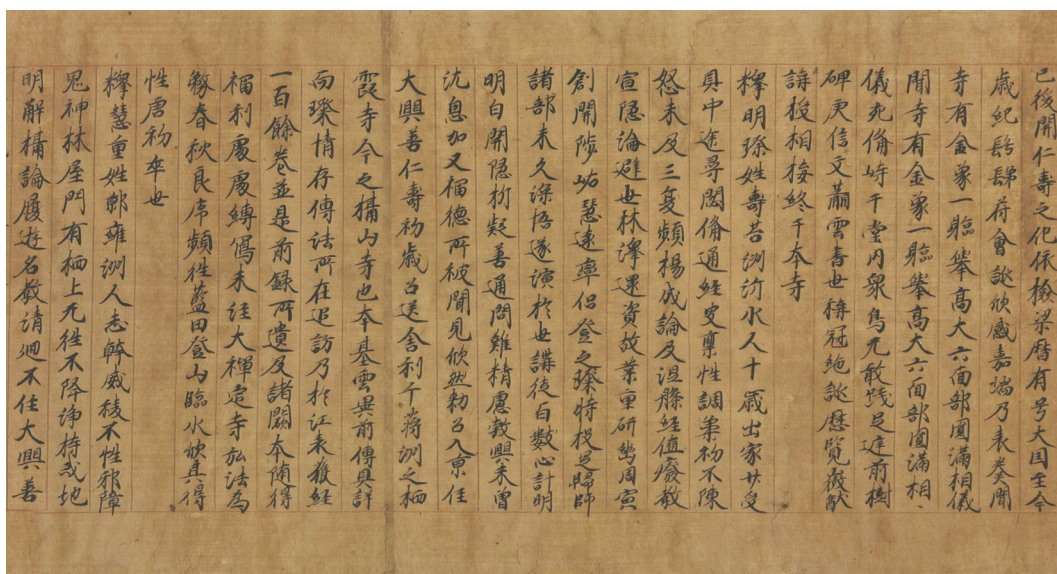 已後開仁壽之化依檢梁曆有号大同至今
歲紀髣髴符會詵欣感嘉瑞乃表奏聞
寺有金象一軀舉高大六面部圓滿相儀
聞寺有金象一軀舉高大六面部圓滿相、
儀充脩峙于堂内眾鳥无敢踐足庭前樹
碑庾信文蕭雲書世稱冠絕詵歷覽徴猷
講授相接終于本寺
釋明璨姓韋莒州沂水人十歲出家廿受
具中途尋閱備通經史稟性調柔初不陳
怒未及三夏頻楊成論及涅槃經值廢教
宣隱論避世林澤還資故業重研幽固寅
創開陟岵慧遠率侶登之璨特投足歸師
諸部未久深悟遂演於世講徒百數心計明
明白開隱析疑善通問難精慮敷興未曾
沈息加又福德所被聞見欣然勑召入京住
大興善仁壽初歲召送舍利于蔣州之栖
霞寺今之攝山寺也本基靈異前傳具詳
而璨情存傳法所在追訪乃於江表獲經
一百餘卷並是前錄所遺及諸闕本隨得
福利處處縛寫末住大禪定寺弘法為
務春秋良席頻往藍田登山臨水欣其得
性唐初卒世
釋慧重姓郭雍州人志幹威稜不怯邪障
鬼神林屋門有栖止无往不降諍持或地
明解攝論履遊名教清迥不住大興善